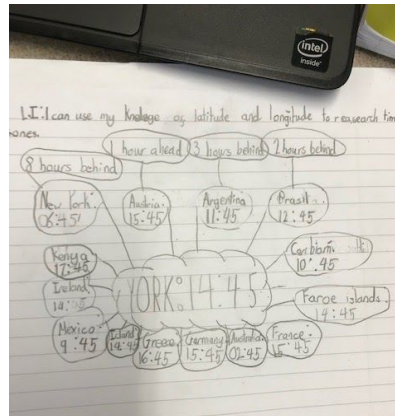 intel
inside
L.I: I can use my knolege of latitude and longitude to reasearch time
ones.
1 hour ahead
3 hours behind
2 hours behind
8 hours behind
New York:
06:45
Austria:
15:45
Argentina
11:45
Brasil:
12:45
Kenya
17:45
Ireland
14:
Mexico
9:45
YORK: 14:45
10:45
Faroe islands.
14:45
14:45
Greece
16:45
Germany
15:45
Australia
02:45
France:
15:45